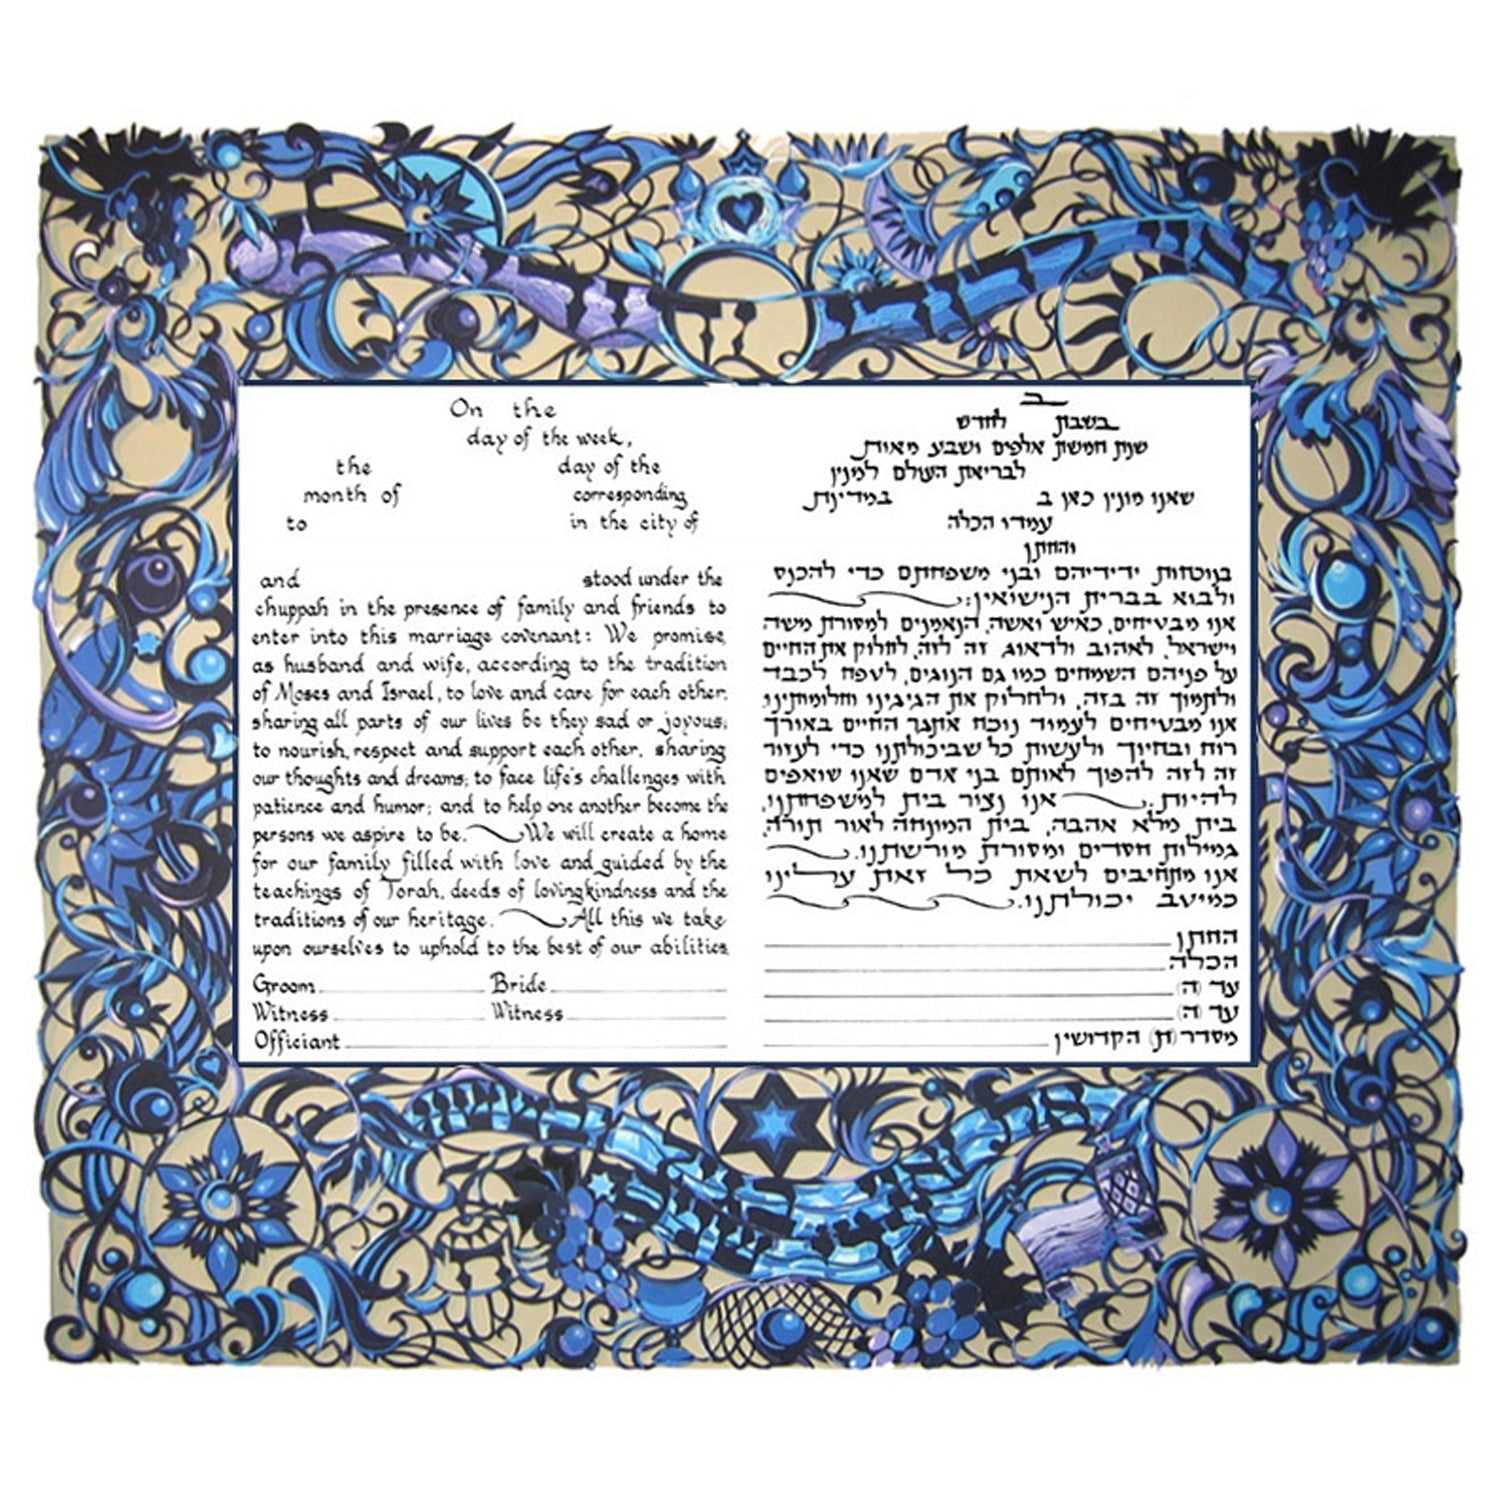 On the
day of the week,
the day of the
month of corresponding
to in the city of
and stood under the
chuppah in the presence of family and friends to
enter into this marriage covenant: We promise,
as husband and wife, according to the tradition
of Moses and Israel, to love and care for each other,
sharing all parts of our lives be they sad or joyous;
to nourish, respect and support each other, sharing
our thoughts and dreams; to face life's challenges with
patience and humor; and to help one another become the
persons we aspire to be. We will create a home
for our family filled with love and guided by the
teachings of Torah, deeds of lovingkindness and the
traditions of our heritage. All this we take
upon ourselves to uphold to the best of our abilities.
Groom Bride
Witness Witness
Officiant
ב
בשבת לחדש
שנת חמשת אלפים ושבע מאות
לבריאת העולם למנין
שאנו מונין כאן ב במדינת
עמדו הכלה
והחתן
בנוכחות ידידיהם ובני משפחתם כדי להכנס
ולבוא בברית הנישואין:
אנו מבטיחים, כאיש ואשה, הנאמנים למסורת משה
וישראל, לאהוב ולדאוג זה לזה, לחלוק את החיים
על פניהם השמחים כמו גם הנוגים, לטפח לכבד
ולתמוך זה בזה, ולחלוק את הגיגינו וחלומותינו.
אנו מבטיחים לעמוד נוכח אתגר החיים באורך
רוח ובחיוך ולעשות כל שביכולתנו כדי לעזור
זה לזה להפוך לאותם בני אדם שאנו שואפים
להיות. אנו נצור בית למשפחתנו,
בית מלא אהבה, בית המונחה לאור תורה,
גמילות חסדים ומסורת מורשתנו.
אנו מתחייבים לשאת כל זאת עלינו
כמיטב יכולתנו.
החתן
הכלה
עד (ה)
עד (ה)
מסדר (ת) הקדושין